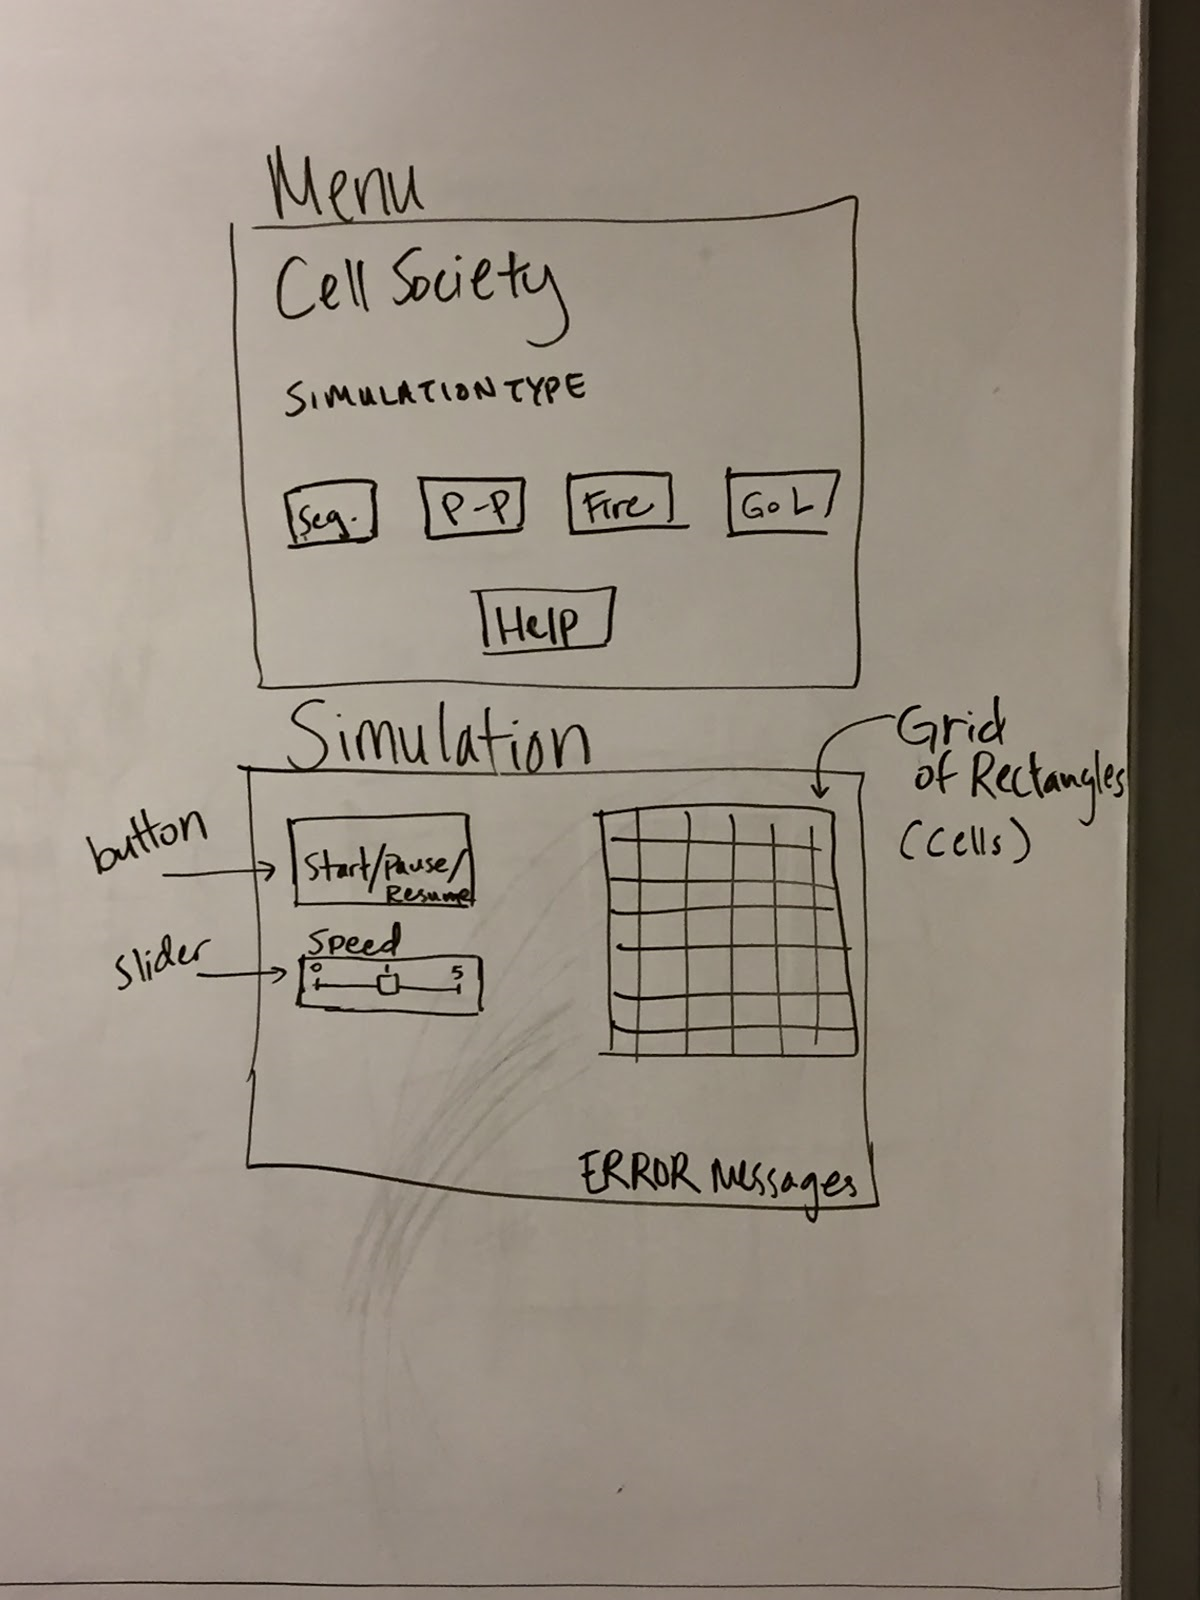 Menu
Cell Society
SIMULATION TYPE
Seg.
P-P
Fire
GoL
Help
Simulation
Grid
of Rectangles
(Cells)
button
Start/Pause/
Resume
slider
Speed
0
5
ERROR Messages